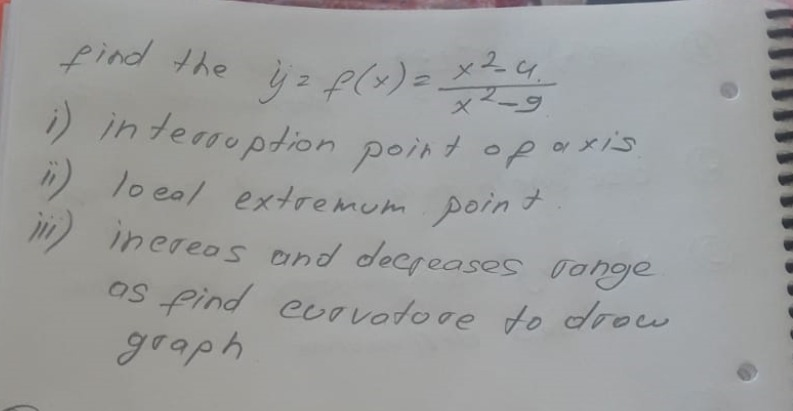 find the y = f(x) = x²-4 / x²-9
i) interruption point of axis
ii) local extremum point.
iii) increas and decreases range
as find curvature to draw
graph